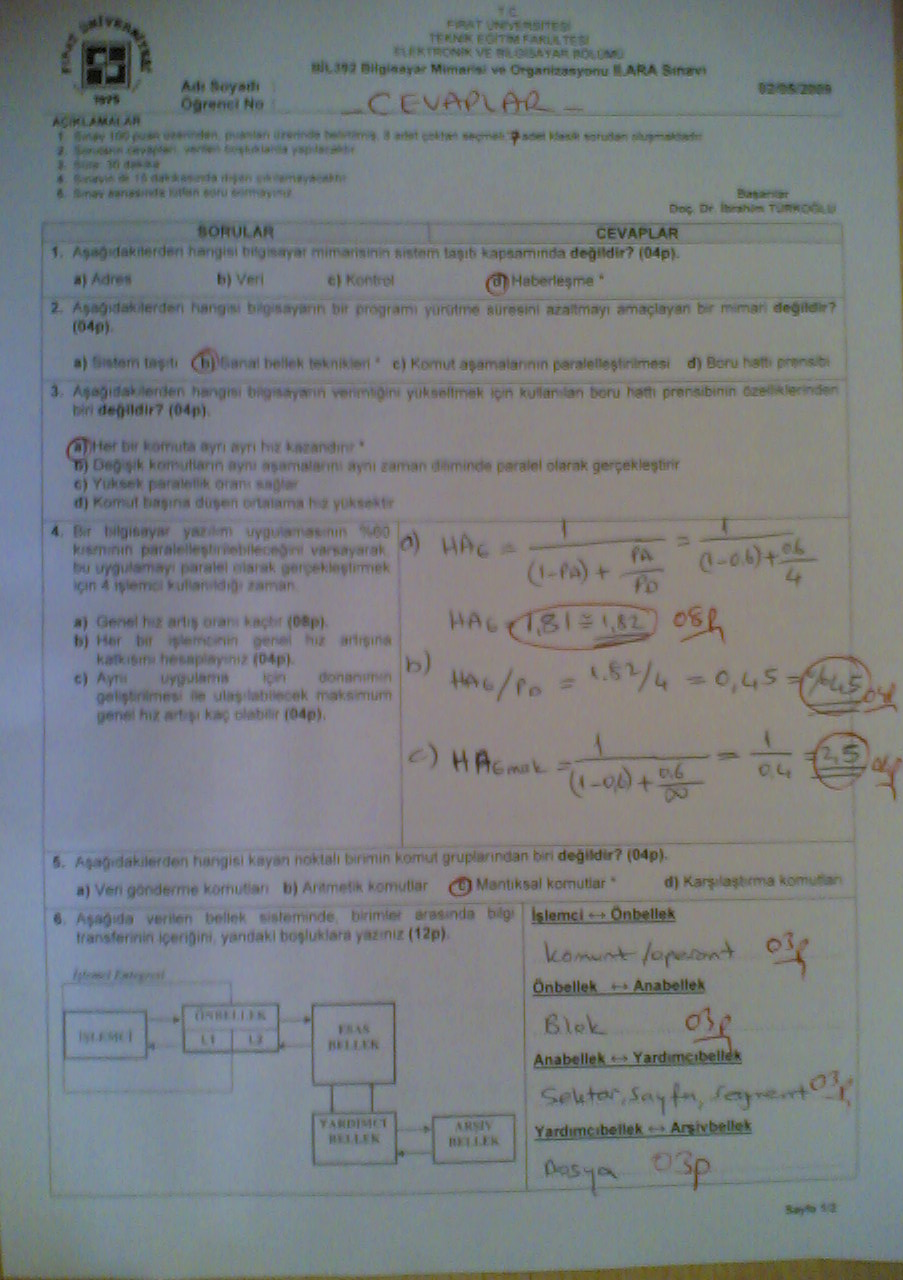 T.C.
FIRAT ÜNİVERSİTESİ
TEKNİK EĞİTİM FAKÜLTESİ
ELEKTRONİK VE BİLGİSAYAR BÖLÜMÜ
BİL392 Bilgisayar Mimarisi ve Organizasyonu II.ARA Sınavı
FIRAT ÜNİVERSİTESİ
1975
Adı Soyadı :
Öğrenci No :
02/05/2009
- CEVAPLAR -
AÇIKLAMALAR
1. Sınav 100 puan üzerinden, puanları üzerinde belirtilmiş, 8 adet çoktan seçmeli, 7 adet klasik sorudan oluşmaktadır.
2. Soruların cevapları, verilen boşluklarda yapılacaktır.
3. Süre: 50 dakika
4. Sınavın ilk 15 dakikasında dışarı çıkılamayacaktır.
5. Sınav esnasında lütfen soru sormayınız.
Başarılar
Doç. Dr. İbrahim TÜRKOĞLU
SORULAR CEVAPLAR
1. Aşağıdakilerden hangisi bilgisayar mimarisinin sistem taşıtı kapsamında değildir? (04p).
a) Adres b) Veri c) Kontrol d) Haberleşme *
2. Aşağıdakilerden hangisi bilgisayarın bir programı yürütme süresini azaltmayı amaçlayan bir mimari değildir?
(04p).
a) Sistem taşıtı b) Sanal bellek teknikleri * c) Komut aşamalarının paralelleştirilmesi d) Boru hattı prensibi
3. Aşağıdakilerden hangisi bilgisayarın verimliğini yükseltmek için kullanılan boru hattı prensibinin özelliklerinden
biri değildir? (04p).
a) Her bir komuta ayrı ayrı hız kazandırır *
b) Değişik komutların aynı aşamalarını aynı zaman diliminde paralel olarak gerçekleştirir
c) Yüksek paralellik oranı sağlar
d) Komut başına düşen ortalama hız yüksektir
4. Bir bilgisayar yazılım uygulamasının %60
kısmının paralelleştirilebileceğini varsayarak,
bu uygulamayı paralel olarak gerçekleştirmek
için 4 işlemci kullanıldığı zaman,
a) Genel hız artış oranı kaçtır (08p).
b) Her bir işlemcinin genel hız artışına
katkısını hesaplayınız (04p).
c) Aynı uygulama için donanımın
geliştirilmesi ile ulaşılabilecek maksimum
genel hız artışı kaç olabilir (04p).
a) HAG = 1 / ((1-PA) + PA/PD) = 1 / ((1-0.6) + 0.6/4)
HAG = 1,81 ≅ 1,82 08p
b) HAG/PD = 1.82/4 = 0,45 = %45 04p
c) HAGmak = 1 / ((1-0,6) + 0,6/∞) = 1/0,4 = 2,5 04p
5. Aşağıdakilerden hangisi kayan noktalı birimin komut gruplarından biri değildir? (04p).
a) Veri gönderme komutları b) Aritmetik komutlar c) Mantıksal komutlar * d) Karşılaştırma komutları
6. Aşağıda verilen bellek sisteminde, birimler arasında bilgi
transferinin içeriğini, yandaki boşluklara yazınız (12p).
İşlemci Entegresi
İŞLEMCİ
ÖNBELLEK
L1 L2
ESAS
BELLEK
YARDIMCI
BELLEK
ARŞİV
BELLEK
İşlemci ↔ Önbellek
komunt/operant 03p
Önbellek ↔ Anabellek
Blok 03p
Anabellek ↔ Yardımcıbellek
Sektör, sayfa, segment 03p
Yardımcıbellek ↔ Arşivbellek
Dosya 03p
Sayfa 1/2